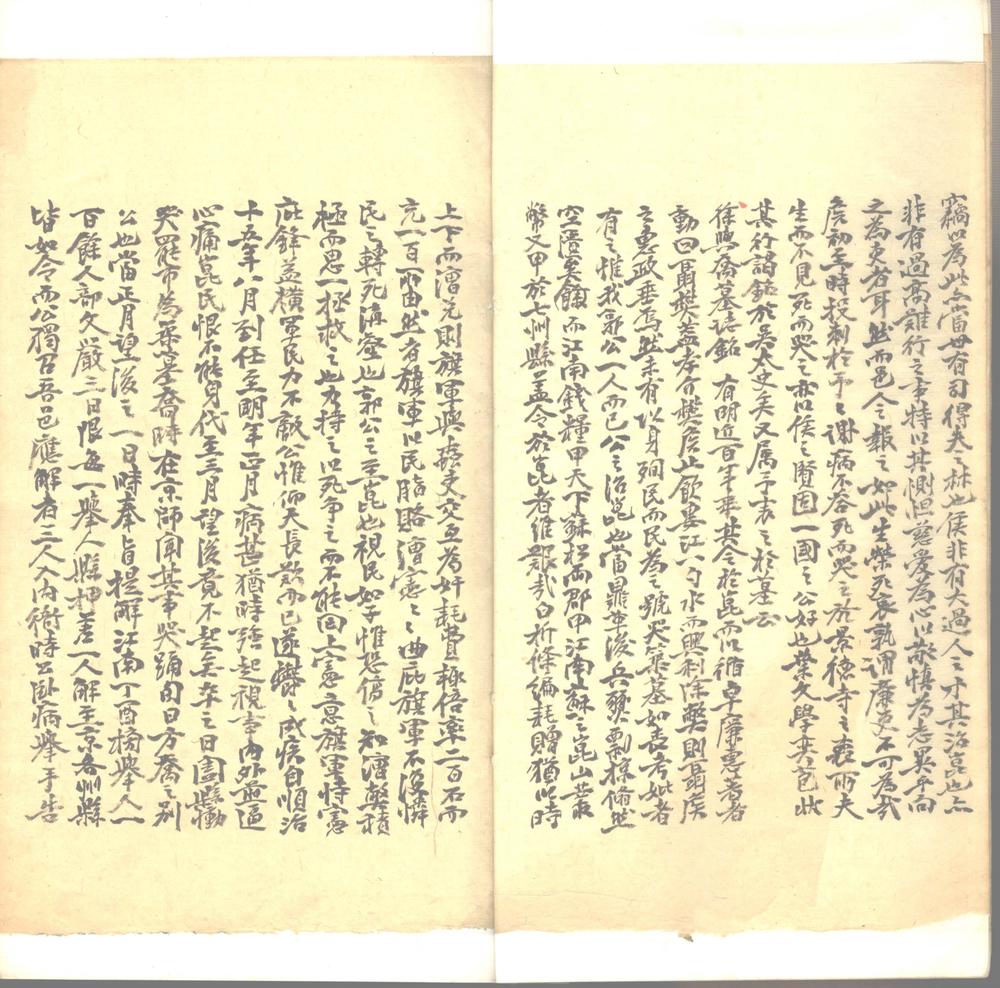 竊以爲此亦當世有司得失之林也侯非有大過人之才其治崑也亦
非有過高難行之事特以其惻怛慈愛爲心以敬慎爲志異乎向
之爲吏者耳然而邑人之報之如此生榮死哀孰謂廉吏不可爲哉
侯初至時投刺於予予謝病不答死而哭之於景德寺之喪所夫
生而不見死而哭之亦以侯之賢固一國之公好也葉文學奕苞狀
其行謁銘於吳太史矣又屬予表之於墓云
徐興喬墓誌銘 有明近百年來其令於崑而以循卓廉惠著者
動曰聶樊蓋孝介樊侯止飲婁江一勺水而興利除弊則聶侯
之惠政垂焉然未有以身殉民而民爲之號哭築墓如喪考妣者
有之惟我郭公一人而已公之治崑也當鼎革後兵燹剽掠脩然
空匱莫餬而江南錢糧甲天下蘇松兩郡甲江南蘇之崑山蕞
幣又甲於七州縣且令於崑者維艱哉白折條編耗贈猶此時
上下而漕兌則旗軍與蠹吏交互爲奸耗費輒倍率二百石而
充一百所由然者旗軍以民脂賂漕憲之曲庇旗軍不復憐
民之轉死溝壑也郭公之至崑也視民如子惟恐傷之知漕弊積
極而思一極救之也乃持之以死爭之而不能回上憲意旗軍恃憲
庇鋒益橫軍民力不敵公惟仰天長歎而已遂鬱鬱成疾自順治
十五年八月到任至明年正月病甚猶時強起視事內外並逼
心痛崑民恨不能身代至三月望後竟不起矣卒之日闔縣慟
哭罷市爲築墓喬時在京師聞其事哭踊旬日方喬之別
公也當正月望後之一日時奉旨提解江南丁酉榜舉人一
百餘人部文嚴三日限每一舉人縣押差一人解至京各州縣
皆如令而公獨召吾邑應解者三人入內衙時公臥病舉手告